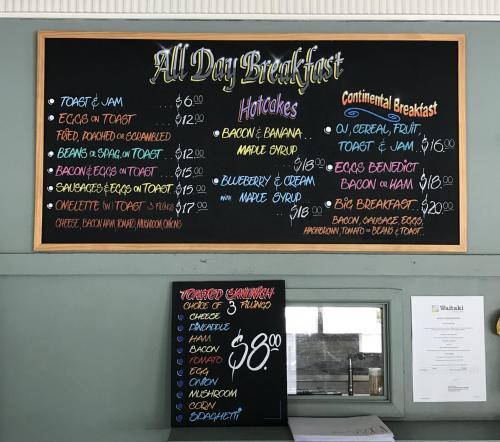 All Day Breakfast
TOAST & JAM ... $6.00
EGGS ON TOAST $12.00
FRIED, POACHED OR SCRAMBLED
BEANS OR SPAG, ON TOAST .. $12.00
BACON & EGGS ON TOAST .. $15.00
SAUSAGES & EGGS ON TOAST .. $15.00
OMELETTE (W) TOAST 3 FILLINGS $17.00
CHEESE, BACON HAM, TOMATO, MUSHROOM, ONIONS
Hotcakes
BACON & BANANA ..
MAPLE SYRUP
$18.00
BLUEBERRY & CREAM
WITH MAPLE SYRUP
$18.00
Continental Breakfast
OJ, CEREAL, FRUIT,
TOAST & JAM .. $16.00
EGGS BENEDICT
BACON OR HAM $18.00
BIG BREAKFAST .. $20.00
BACON, SAUSAGE, EGGS,
HASHBROWN, TOMATO OR BEANS & TOAST.
TOASTED SANDWICH
CHOICE OF 3 FILLINGS
CHEESE
PINEAPPLE
HAM
BACON
TOMATO
EGG
ONION
MUSHROOM
CORN
SPAGHETTI
$8.00
Waitaki